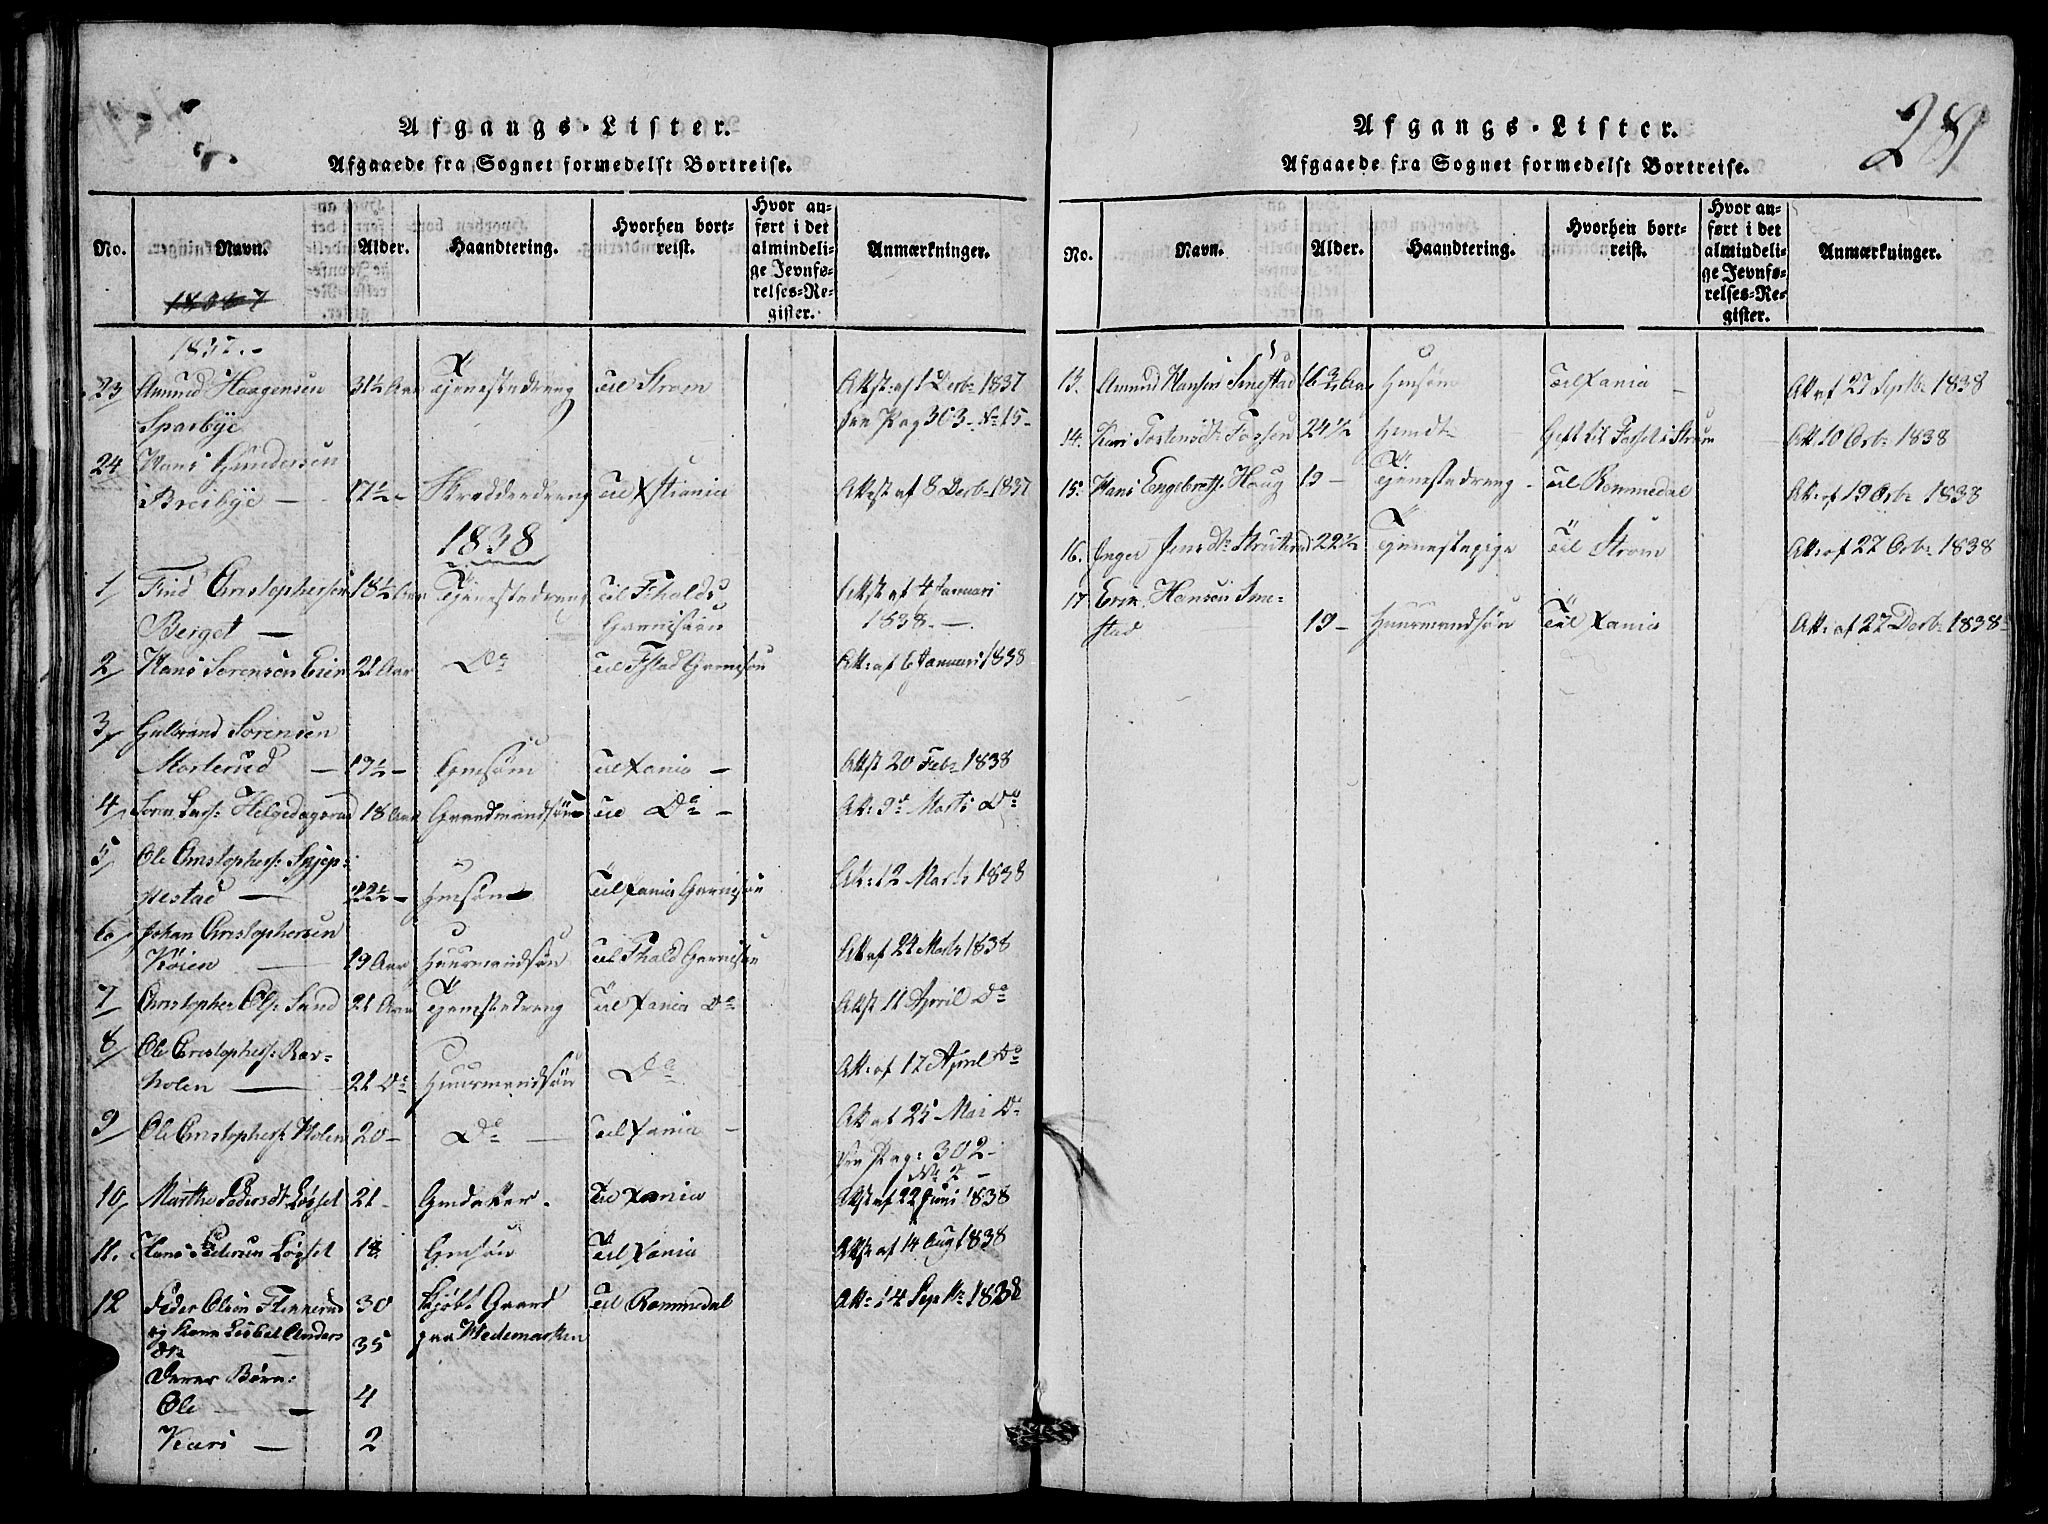 Afgangs-Lister.
Afgaaede fra Sognet formedelst Bortreise.
No. Navn. Alder. Haandtering. Hvorhen bortreist. Hvor anført i det almindelige Jevnførelses-Register. Anmærkninger.
1837.-
23 Amund Haagensen 31½ Aar Tjenestedreng Til Strøm Attst: af 1 Decbr 1837
Sparbye Pag 303. No 15-
24 Hans Gundersen
Breibye - 17½- Skrædderdreng Til Xstiania Attest af 8 Decbr 1837
1838
1/ Find Christophersen 18½ Aar Tjenestedreng Til Fhalds Attst af 4 Januari
Berget - Garnisøn 1838.-
2/ Hans Sørensen Eier 21 Aar Do Til Fstad Garnisøn Att: af 6 Januari 1838
3/ Gulbrand Sørensen
Morterud - 19½- Gmsøn Til Xania - Attst 20 Febr 1838
4/ Søren Lars: Helgedagsrud 18 Aar Gaardmandsøn Til Do - At: 9de Marts Do
5/ Ole Christophers: Skjep-
pestad - 22½- Hmsøn Til Xania Garnisøn At: 12 Marts 1838
6/ Johan Christophersen
Køien - 19 Aar Huusmandsøn Til Fhald Garnisøn Att af 24 Marts 1838
7/ Christopher Ols: Sand 21 Aar Tjenestedreng Til Xania Do Attst 11 April Do
8/ Ole Christophers: Rav-
holen - 21 Do Huusmandsøn Do Att: af 17 April Do
9/ Ole Christophers: Holen 20- Do - Til Xania - Att af 25 Mai Do
Pag: 302-
No 2 -
10/ Marthe Pedersdt. Løset 21- Gmdatter. Til Xania Attst af 22 Juni 1838
11. Hans Pedersen Løset 18 Gmsøn Til Xania Attst af 14 Aug 1838
12 Peder Olsen Finnerud 30 Kjøbt Gaard Til Rommedal Att: 14 Septbr 1838
og Kone Lisbet Anders 35 paa Hedemarken
dtr -
Deres Børn:
Ole - 4
Kari - 2
Afgangs-Lister. 281
Afgaaede fra Sognet formedelst Bortreise.
No. Navn. Alder. Haandtering. Hvorhen bortreist. Hvor anført i det almindelige Jevnførelses-Register. Anmærkninger.
13. Amund Hansen Smestad 16 Aar Hmsøn Til Xania - Att af 27 Septbr 1838
14. Kari Tostensdt: Fossen 24½ Hmdt- Gift til Fosset i Strøm Att 10 Octbr 1838
15: Hans Engebrets: Haug 19 - Tjenestedreng - Til Rommedal Att: af 19 Octbr 1838
16. Inger Jensdtr Strutrud 22½ Tjenestepige Til Strøm Att: af 27 Octbr 1838
17 Erik Hansen Sme-
stad 19- Huusmandsøn Til Xania Att: af 27 Decbr 1838-